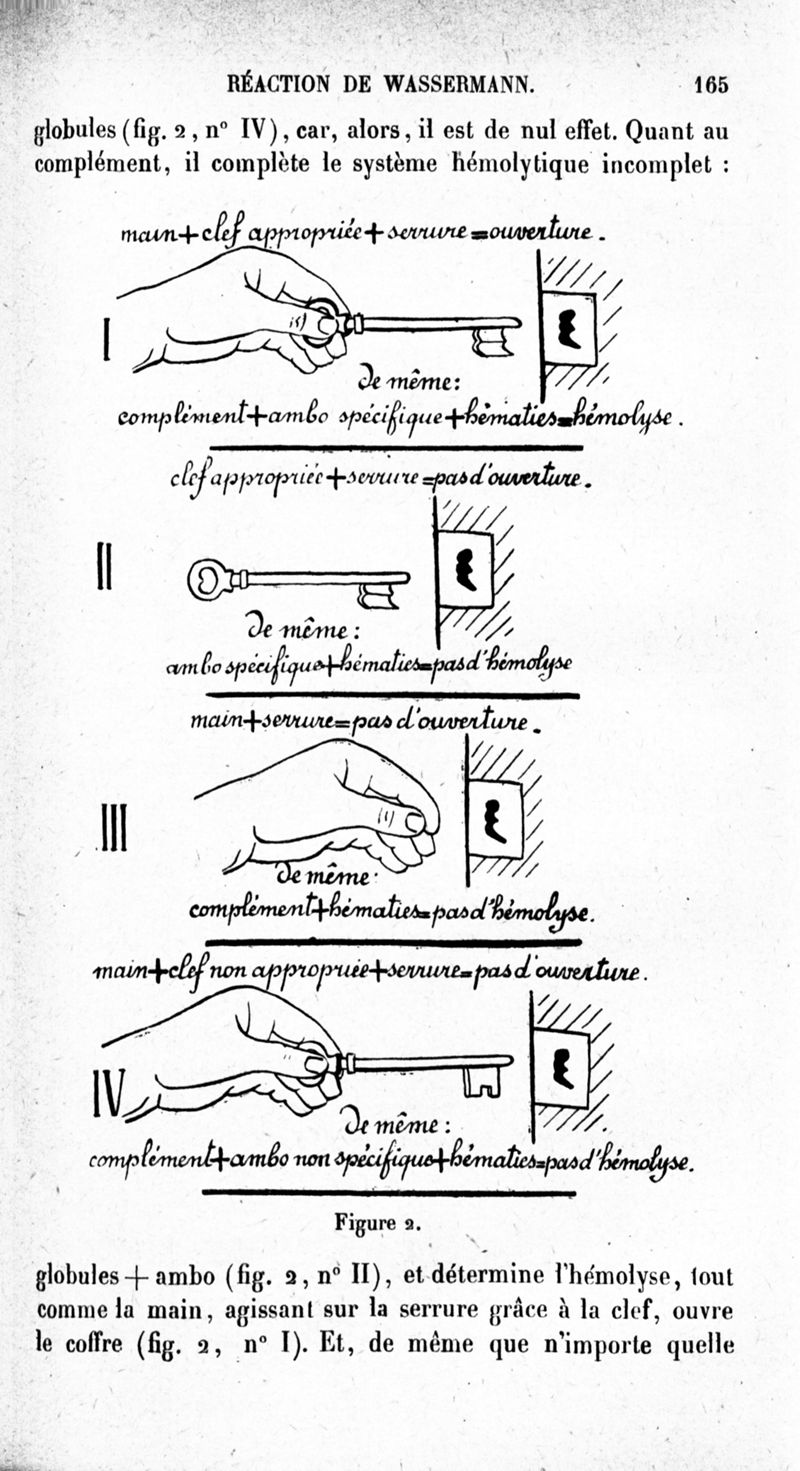 RÉACTION DE WASSERMANN. 165
globules (fig. 2, n° IV), car, alors, il est de nul effet. Quant au
complément, il complète le système hémolytique incomplet :
main+clef appropriée+serrure=ouverture.
I
De même:
complément+ambo spécifique+hématies=hémolyse.
clef appropriée+serrure=pas d'ouverture.
II
De même:
ambo spécifique+hématies=pas d'hémolyse
main+serrure=pas d'ouverture.
III
De même:
complément+hématies=pas d'hémolyse.
main+clef non appropriée+serrure=pas d'ouverture.
IV
De même:
complément+ambo non spécifique+hématies=pas d'hémolyse.
Figure 2.
globules + ambo (fig. 2, n° II), et détermine l'hémolyse, tout
comme la main, agissant sur la serrure grâce à la clef, ouvre
le coffre (fig. 2, n° I). Et, de même que n'importe quelle